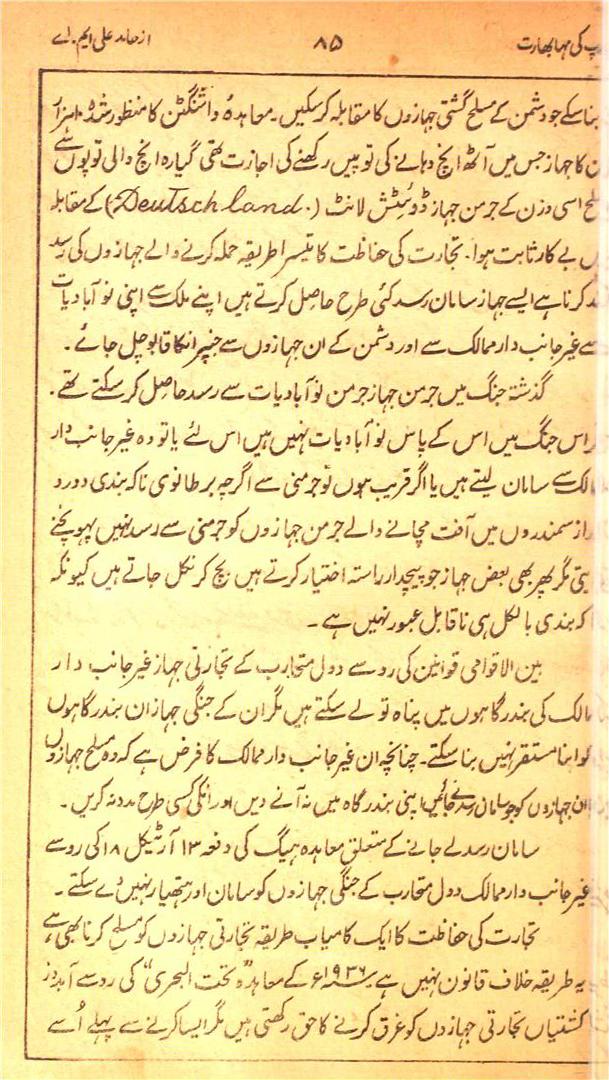 پ کی مہابھارت ۸۵ از حامد علی ایم۔اے
بنا سکے جو دشمن کے مسلح گشتی جہازوں کا مقابلہ کرسکیں۔ معاہدۂ واشنگٹن کا منظور شدہ
ن کا جہاز جس میں آٹھ انچ دہانے کی توپیں رکھنے کی اجازت تھی گیارہ انچ والی توپوں سے
لح اسی وزن کے جرمن جہاز ڈوئٹش لانٹ (Deutschland.) کے مقابلہ
ں بے کار ثابت ہوا۔ تجارت کی حفاظت کا تیسرا طریقہ حملہ کرنے والے جہازوں کی رسد
د کرنا ہے ایسے جہاز سامان رسد کئی طرح حاصل کرتے ہیں اپنے ملک سے اپنی نو آبادیات
سے غیر جانب دار ممالک سے اور دشمن کے ان جہازوں سے جنپر انکا قابو چل جائے۔
گذشتہ جنگ میں جرمن جہاز جرمن نو آبادیات سے رسد حاصل کر سکتے تھے۔
ر اس جنگ میں اس کے پاس نو آبادیات نہیں ہیں اس لئے یا تو وہ غیر جانب دار
الک سے سامان لیتے ہیں یا اگر قریب ہوں تو جرمنی سے اگرچہ برطانوی ناکہ بندی دور و
راز سمندروں میں آفت مچانے والے جرمن جہازوں کو جرمنی سے رسد نہیں پہونچنے
یتی مگر پھر بھی بعض جہاز جو پیچدار راستہ اختیار کرتے ہیں بچ کر نکل جاتے ہیں کیونکہ
اکہ بندی بالکل ہی ناقابل عبور نہیں ہے۔
بین الاقوامی قوانین کی رو سے دول متحارب کے تجارتی جہاز غیر جانب دار
مالک کی بندرگاہوں میں پناہ تو لے سکتے ہیں مگر ان کے جنگی جہاز ان بندرگاہوں
کو اپنا مستقر نہیں بنا سکتے۔ چنانچہ ان غیر جانب دار ممالک کا فرض ہے کہ وہ مسلح جہازوں
ان جہازوں کو جو سامان رسد لے جائیں اپنی بندرگاہ میں نہ آنے دیں اور انکی کسی طرح مدد نہ کریں۔
سامان رسد لے جانے کے متعلق معاہدہ ہیگ کی دفعہ ۱۳ آرٹیکل ۱۸ کی رو سے
غیر جانب دار ممالک دول متحارب کے جنگی جہازوں کو سامان اور ہتھیار نہیں دے سکتے۔
تجارت کی حفاظت کا ایک کامیاب طریقہ تجارتی جہازوں کو مسلح کرنا بھی ہے
یہ طریقہ خلاف قانون نہیں ہے ۱۹۳۶ء کے معاہدہ "تحت البحری" کی رو سے آبدوز
کشتیاں تجارتی جہازوں کو غرق کرنے کا حق رکھتی ہیں مگر ایسا کرنے سے پہلے اُسے